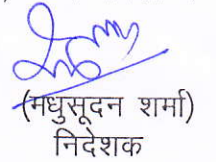 (मधुसूदन शर्मा)
निदेशक